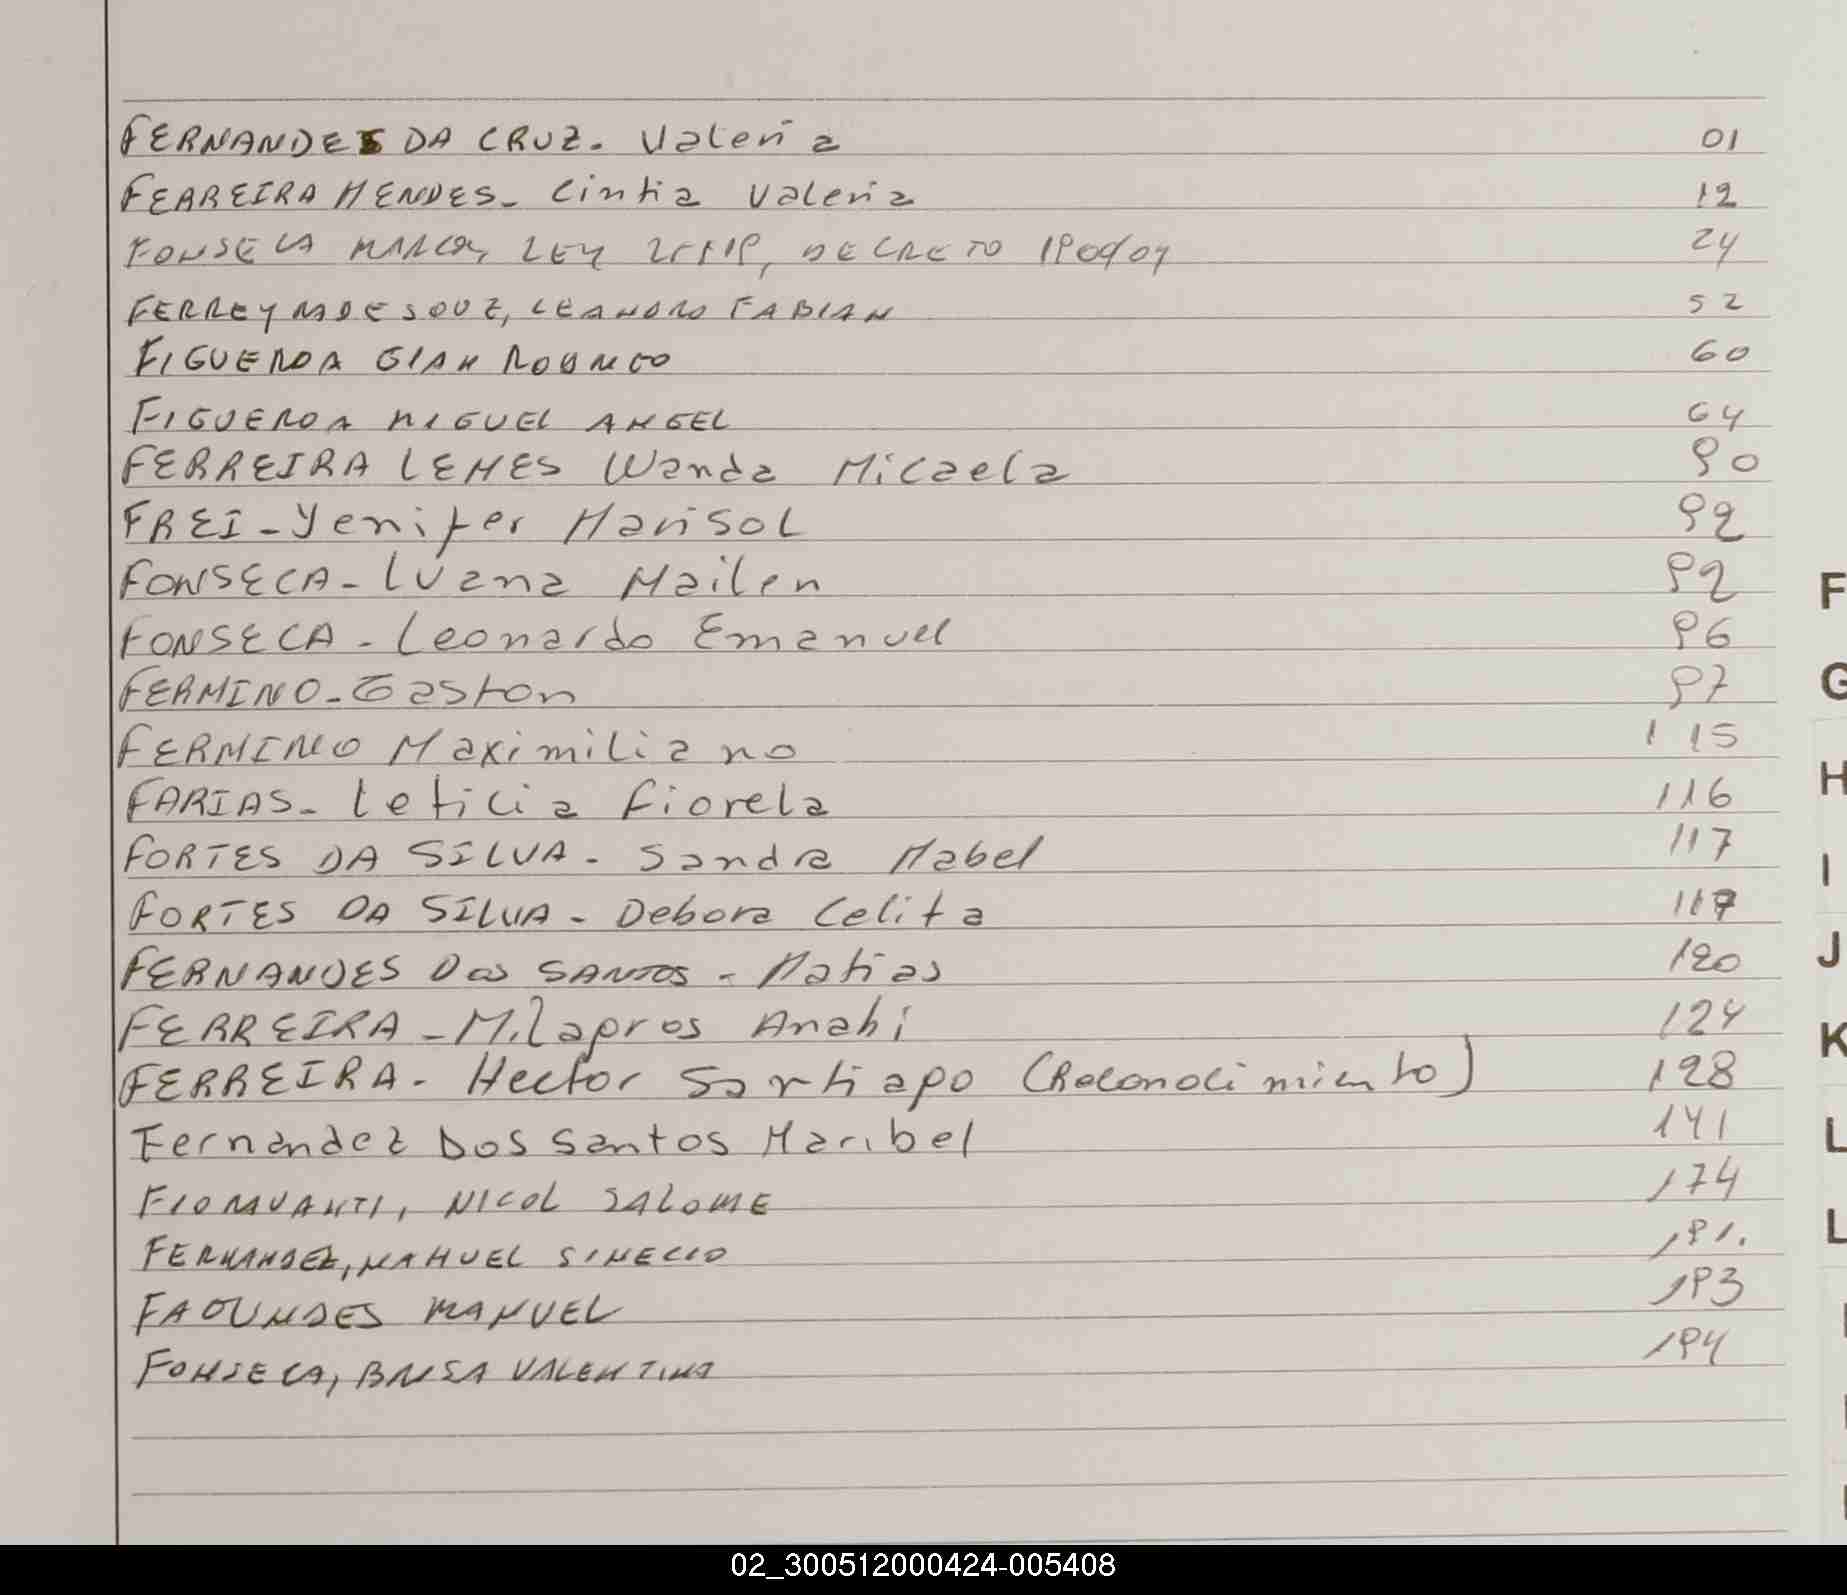 FERNANDES DA CRUZ. Valeria 01
FERREIRA MENDES- Cintia Valeria 12
FONSECA MARCOS, LEY DECRETO 24
FERREYRA DE SOUZ, LEANDRO FABIAN 52
FIGUEROA GIAN 60
FIGUEROA MIGUEL ANGEL 64
FERREIRA LEMES Wanda Micaela 90
FREI-Yenifer Marisol 92
FONSECA-Luana Mailen 92
FONSECA-Leonardo Emanuel 96
FERMINO-Gaston 97
FERMINO Maximiliano 115
FARIAS- Leticia Fiorela 116
FORTES DA SILVA- Sandra Mabel 117
FORTES DA SILVA- Debora Celita 117
FERNANDES Dos SANTOS - Matias 120
FERREIRA-Milagros Anahi 124
FERREIRA- Hector Santiago (Reconocimiento) 128
Fernandez Dos Santos Maribel 141
FIORAVANTI, NICOL SALOME 174
FERNANDEZ, NAHUEL SINECIO 191.
FAGUNDES MANUEL 193
FONSECA, BRISA VALENTINA 194
F
G
H
I
J
K
L
L
02_300512000424-005408